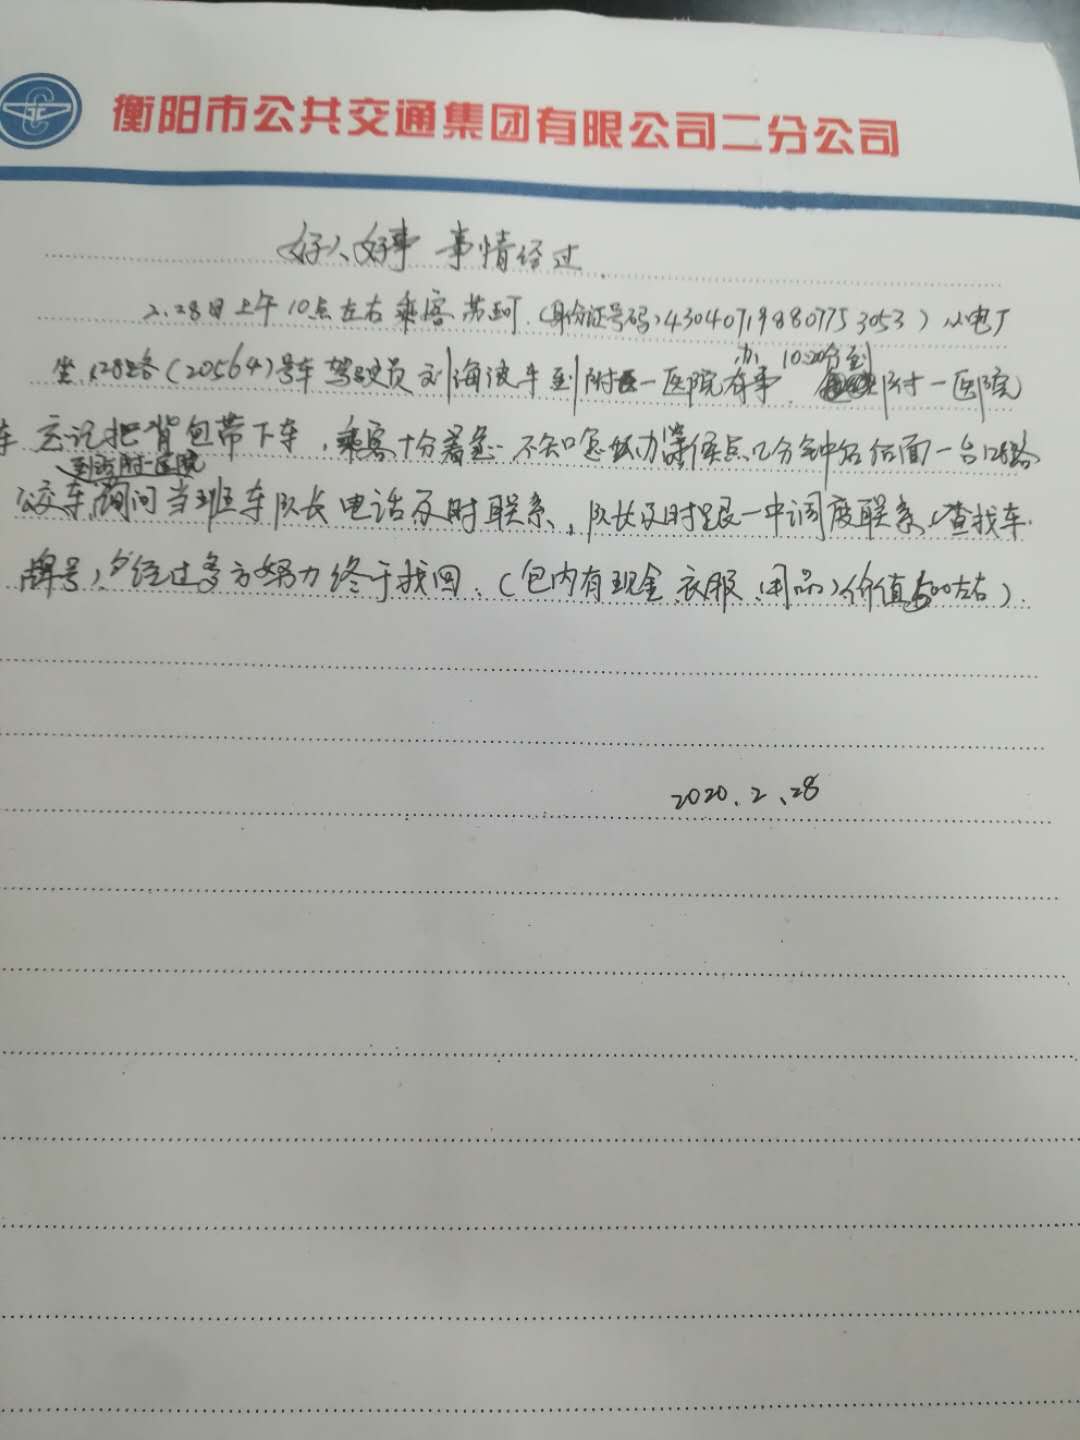 衡阳市公共交通集团有限公司二分公司
好人好事 事情经过.
2.28日上午10点左右乘客苏珂.(身份证号码:430407198807753053)从电厂
坐128路(20564)号车驾驶员刘海波车到附一医院有事. 办 10:20分到 附一医院
忘记把背包带下车,乘客十分着急.不知怎么办等候点.几分钟后后面一台128路
到站附一医院
公交车询问当班车队长电话及时联系,队长及时跟一中调度联系(查找车
牌号)经过多方努力终于找回.(包内有现金.衣服.用品)价值500左右).
2020.2.28